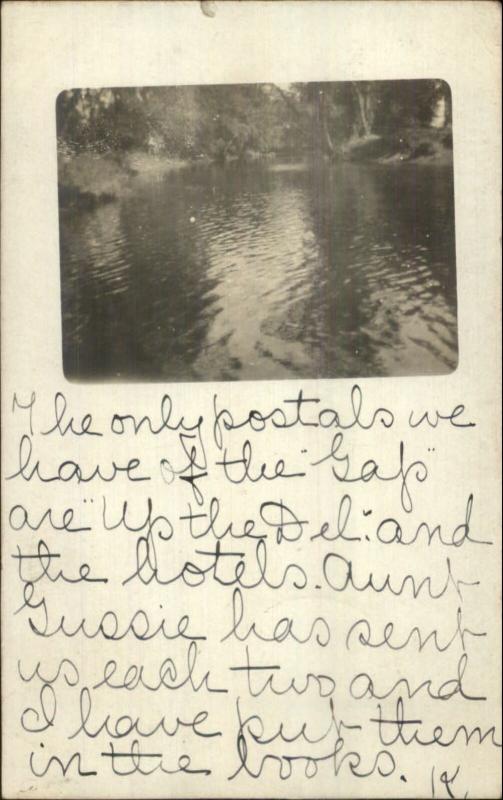 The only postals we
have of the "Gap"
are "Up the Del". and
the hotels. Aunt
Gussie has sent
us each two and
I have put them
in the books. K.